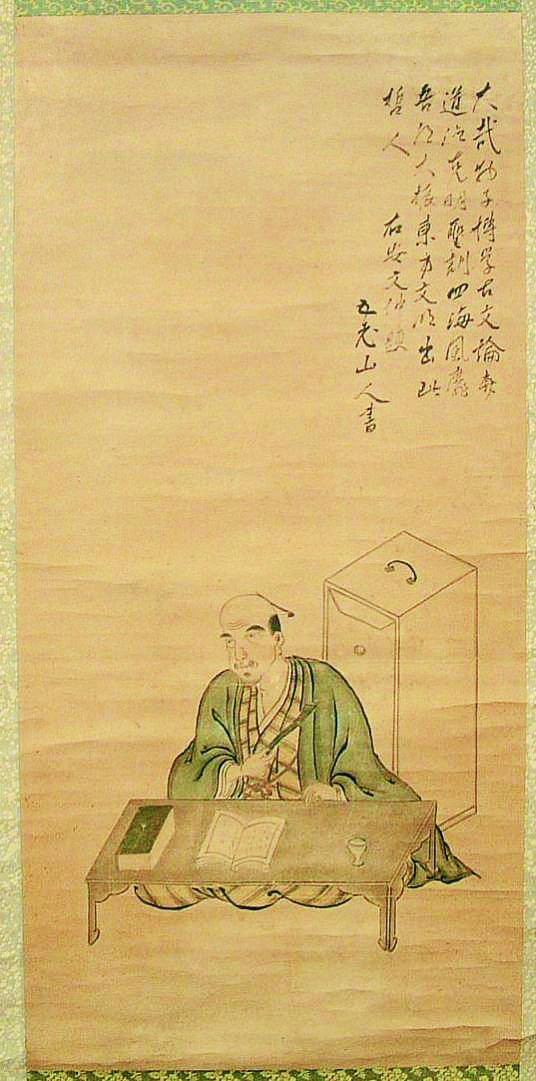 大哉物子博学古文論六
道洽克明聖訓四海風靡
吾
大振東方文明出此
哲人
右安文仲題
五老山人書